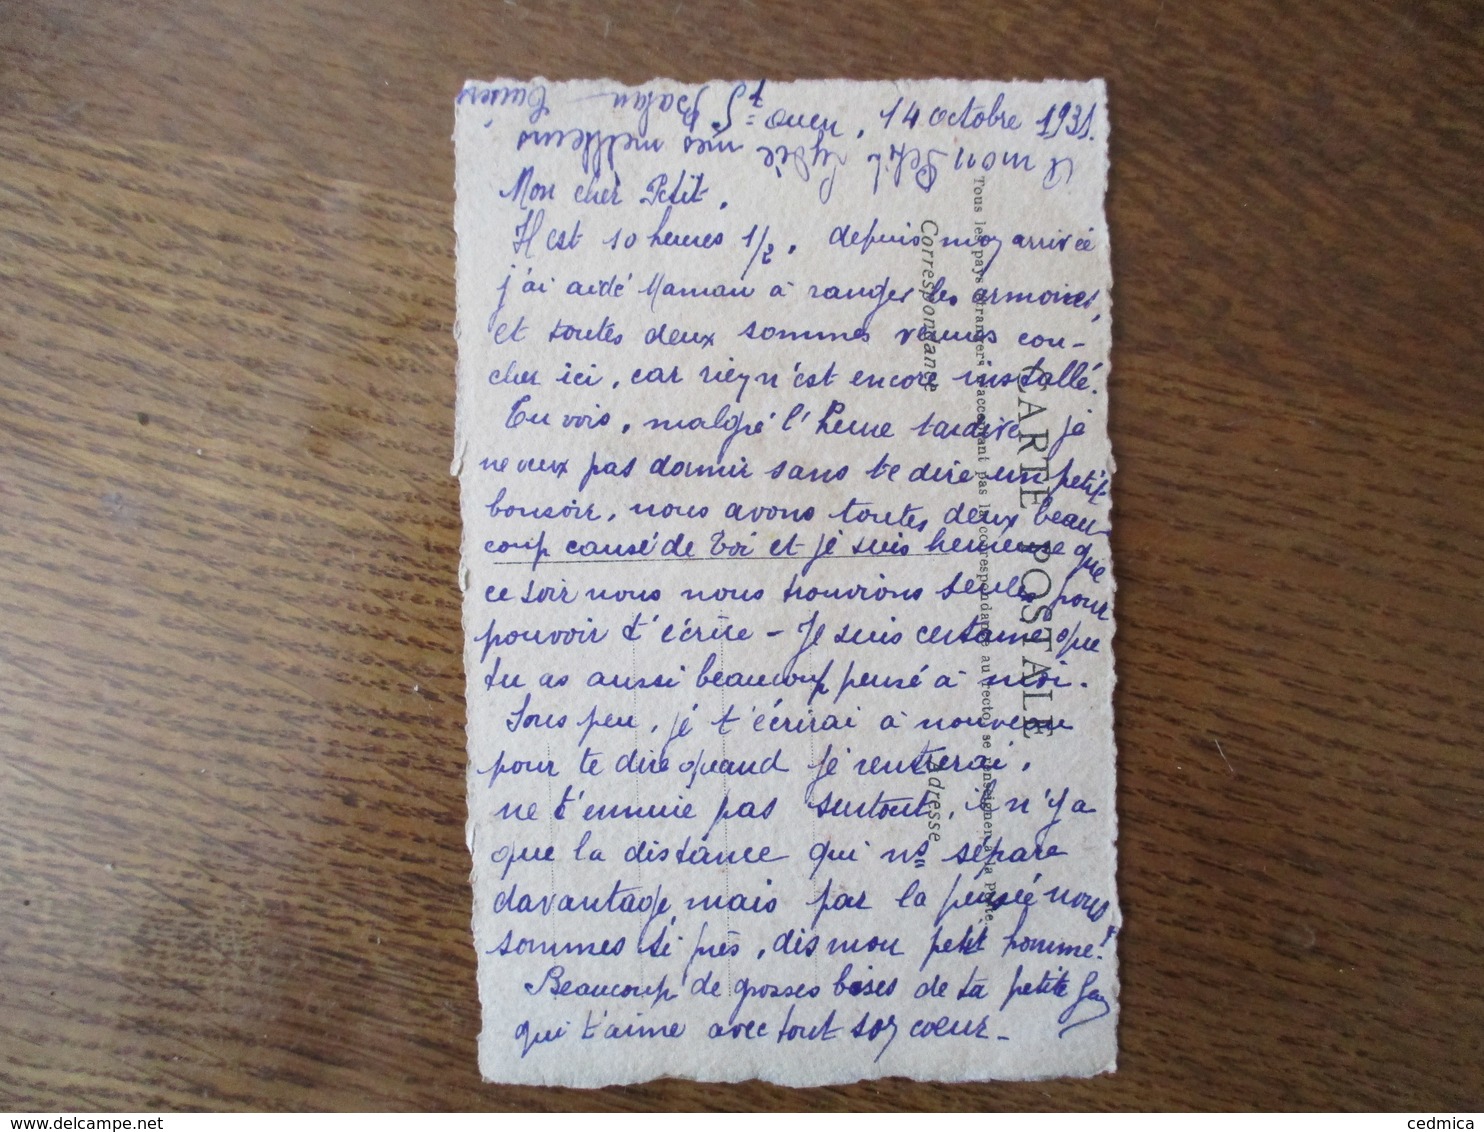 St Ouen, 14 octobre 1931.
Mon cher Petit,
Il est 10 heures 1/2, depuis mon arrivée
j'ai aidé Maman à ranger les armoires,
et toutes deux sommes venues cou-
cher ici, car rien n'est encore installé.
Tu vois, malgré l'heure tardive je
ne veux pas dormir sans te dire un petit
bonsoir, nous avons toutes deux beau
coup causé de Toi et je suis heureuse que
ce soir nous nous trouvions seules pour
pouvoir t'écrire - Je suis certaine que
tu as aussi beaucoup pensé à moi.
Sous peu, je t'écrirai à nouveau
pour te dire quand je rentrerai,
ne t'ennuie pas surtout, il n'y a
que la distance qui ns sépare
davantage, mais par la pensée nous
sommes si près, dis mon petit homme!
Beaucoup de grosses bises de ta petite
qui t'aime avec tout son cœur -
A mon Petit mes meilleurs
Baisers
CARTE POSTALE
Tous les pays étrangers n'acceptant pas la correspondance au recto, se renseigner à la poste.
Correspondance
Adresse
cedmica